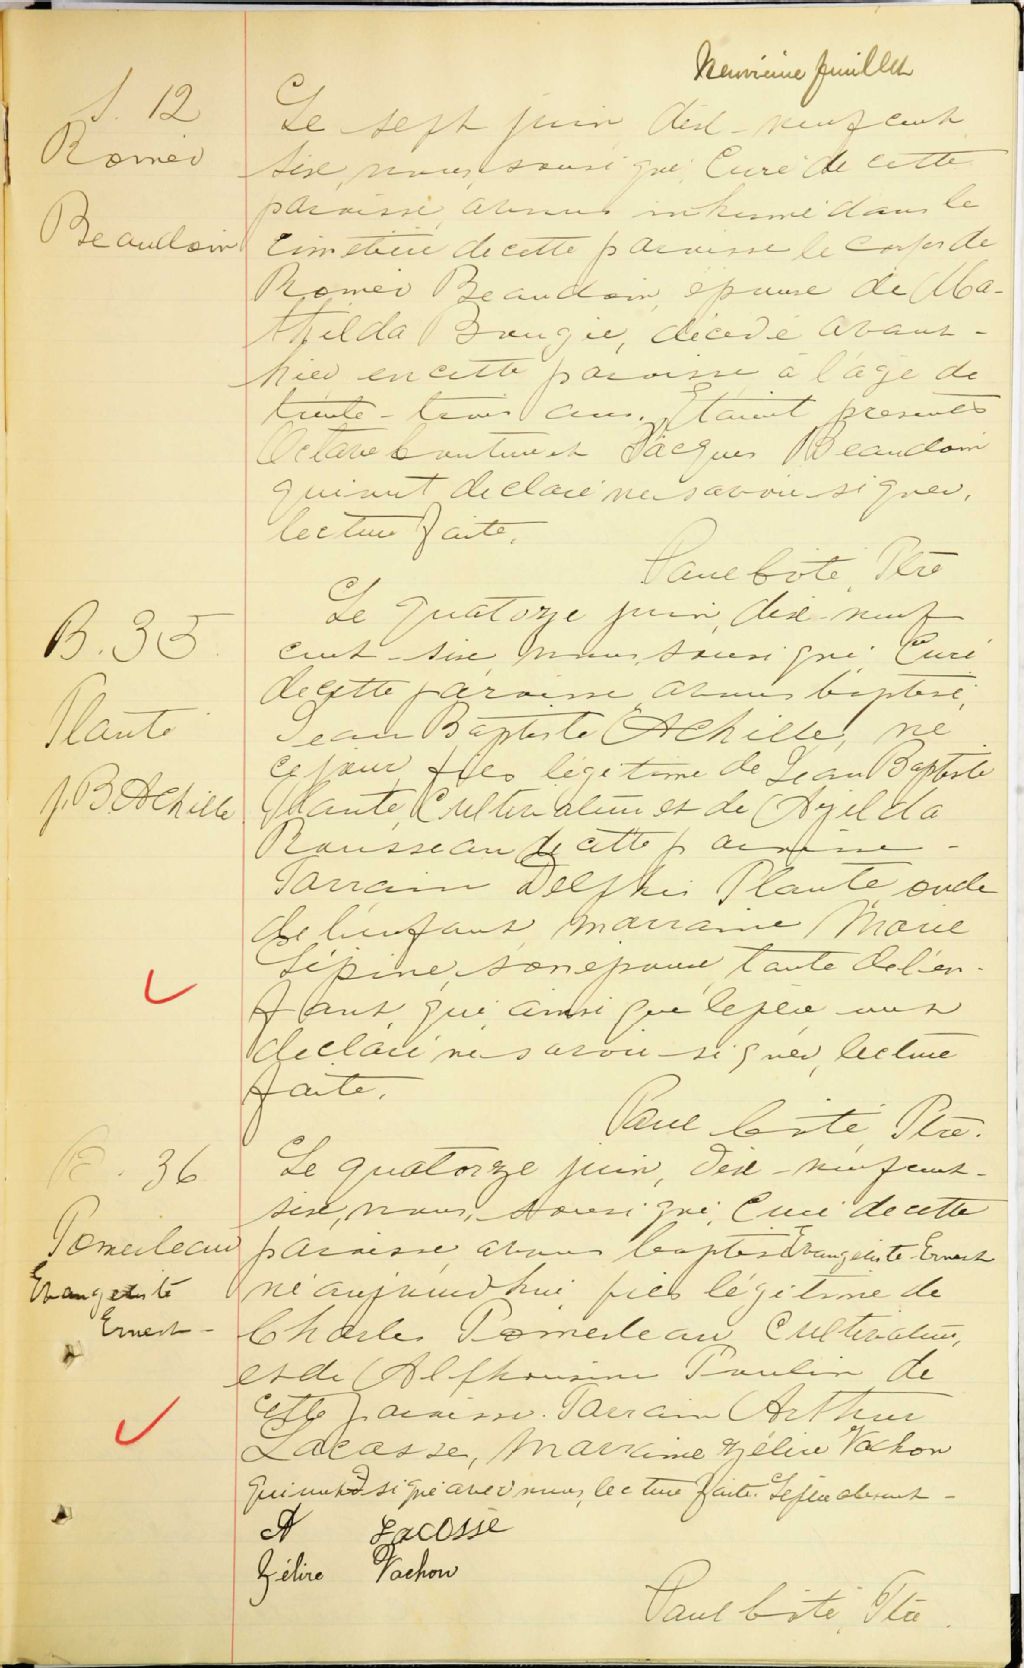 Neuvième feuillet
S. 12
Roméo
Beaudoin
Le sept juin, dix-neuf cent
six, nous, soussigné, Curé de cette
paroisse, avons inhumé dans le
cimetière de cette paroisse le corps de
Roméo Beaudoin, époux de Ma-
thilda Bougie, décédé avant-
hier en cette paroisse à l'âge de
trente-trois ans. Etaient présents
Octave Couture et Jacques Beaudoin
qui ont déclaré ne savoir signer,
lecture faite.
Paul Coté, Ptre
B. 35
Plante
J. B. Achille
Le quatorze juin, dix-neuf
cent-six, nous, soussigné, Curé
de cette paroisse avons baptisé,
Jean Baptiste Achille, né
ce jour, fils légitime de Jean Baptiste
Plante, Cultivateur et de Azilda
Rousseau de cette paroisse -
Parrain Delphis Plante oncle
de l'enfant, marraine Marie
Lépine, son épouse, tante de l'en-
fant, qui, ainsi que le père ont
déclaré ne savoir signer, lecture
faite.
Paul Coté, Ptre.
B. 36
Pomerleau
Evangeliste
Ernest -
Le quatorze juin, dix-neuf cent-
six, nous, soussigné, Curé de cette
paroisse, avons baptisé Evangeliste Ernest
né aujourd'hui, fils légitime de
Charles Pomerleau, Cultivateur,
et de Alphonsine Poulin de
cette paroisse. Parrain Arthur
Lacasse, Marraine Zélire Vachon
qui ont signé avec nous, lecture faite. Le père absent -
A Lacasse
Zélire Vachon
Paul Coté, Ptre